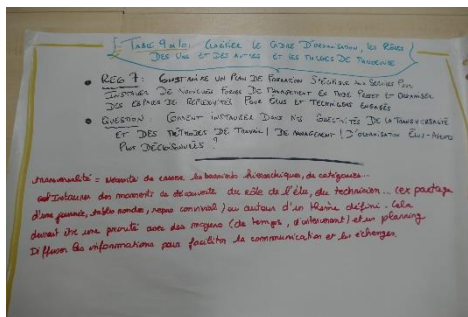 TABLE 9 CLARIFIER LE CADRE D'ORGANISATION, LES RÔLES
DES UNS ET DES AUTRES ET LES THÈMES DE
• REG 7: CONSTRUIRE UN PLAN DE FORMATION SPÉCIFIQUE AUX POUR
INSTAURER DE NOUVELLES FORMES DE MANAGEMENT EN MODE PROJET ET ORGANISER
DES ESPACES DE RÉFLEXIVITÉS POUR ÉLUS ET TECHNICIENS ENGAGÉS
• QUESTION: COMMENT INSTAURER DANS NOS COLLECTIVITÉS DE LA TRANSVERSALITÉ
ET DES MÉTHODES DE TRAVAIL / DE MANAGEMENT / D'ORGANISATION ÉLUS-AGENTS
PLUS DÉCLOISONNÉES ?
transversalité = nécessité de casser les barrières hiérarchiques, de catégories...
Instaurer des moments de découverte du rôle de l'élu, du technicien... (ex partage
d'une journée, tables rondes, repas convivial) ou autour d'un thème défini. Cela
devrait être une priorité avec des moyens (de temps, d'intervenant) et un planning
Diffuser les informations pour faciliter la communication et les échanges.